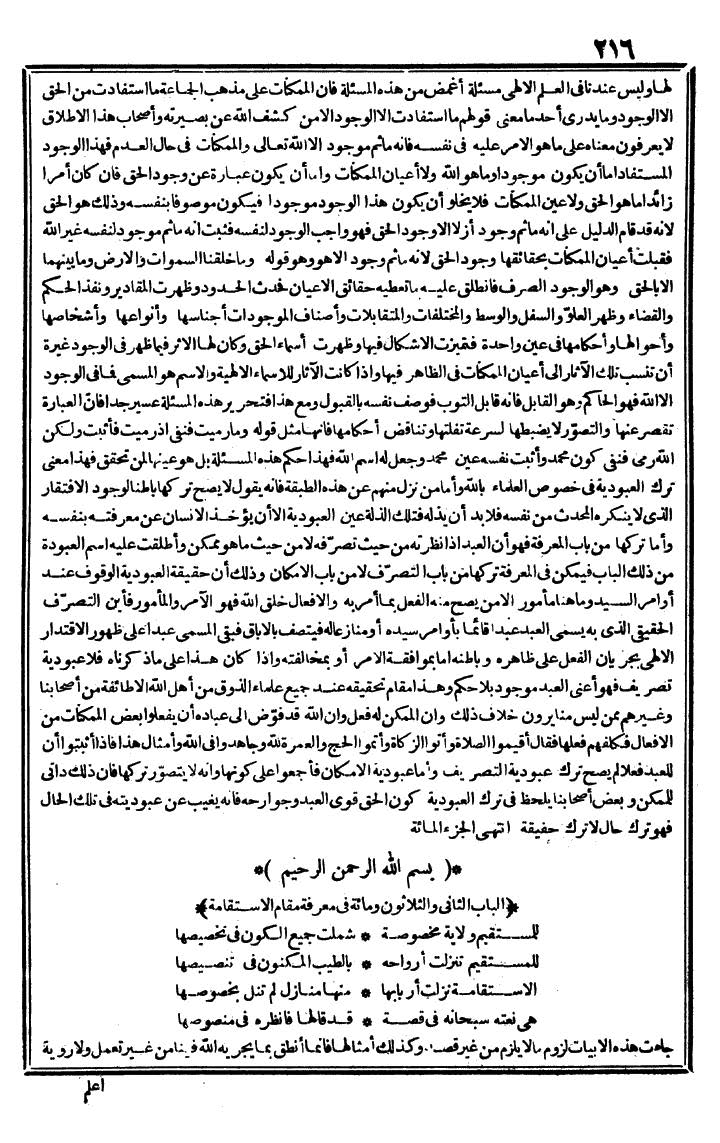 ٢١٦
لها وليس عندنا فى العلم الالهى مسئلة أغمض من هذه المسئلة فان الممكنات على مذهب الجاعة ما استفادت من الحق
الا الوجود وما يدرى أحد ما معنى قولهم ما استفادت الا الوجود الا من كشف الله عن بصيرته وأصحاب هذا الاطلاق
لا يعرفون معناه على ما هو الامر عليه فى نفسه فانه ما ثم موجود الا الله تعالى والممكنات فى حال العدم فهذا الوجود
المستفاد اما أن يكون موجودا وما هو الله ولا أعيان الممكنات واما أن يكون عبارة عن وجود الحق فان كان أمرا
زائدا ما هو الحق ولا عين الممكنات فلا يخلو أن يكون هذا الوجود موجودا فيكون موصوفا بنفسه وذلك هو الحق
لانه قد قام الدليل على انه ما ثم وجود أزلا الا وجود الحق فهو واجب الوجود لنفسه فثبت انه ما ثم موجود لنفسه غير الله
فقبلت أعيان الممكنات بحقائقها وجود الحق لانه ما ثم وجود الا هو وهو قوله وما خلقنا السموات والارض وما بينهما
الا بالحق وهو الوجود الصرف فانطلق عليه ما تعطيه حقائق الاعيان فحدث الحدود وظهرت المقادير ونفذ الحكم
والقضاء وظهر العلو والسفل والوسط والمختلفات والمتقابلات وأصناف الموجودات أجناسها وأنواعها وأشخاصها
وأحوالها وأحكامها فى عين واحدة فتميزت الاشكال فيها وظهرت أسماء الحق وكان لها الاثر فيما ظهر فى الوجود غيرة
أن تنسب تلك الآثار الى أعيان الممكنات فى الظاهر فيها واذا كانت الآثار للاسماء الالهية والاسم هو المسمى فما فى الوجود
الا الله فهو الحاكم وهو القابل فانه قابل التوب فوصف نفسه بالقبول ومع هذا فتحرير هذه المسئلة عسير جدا فان العبارة
تقصر عنها والتصوّر لا يضبطها لسرعة تفلتها وتناقض أحكامها فانها مثل قوله وما رميت فنفى اذ رميت فأثبت ولكن
الله رمى فنفى كون محمد وأثبت نفسه عين محمد وجعل له اسم الله فهذا حكم هذه المسئلة بل هو عينها لمن تحقق فهذا معنى
ترك العبودية فى خصوص العلماء بالله وأما من نزل منهم عن هذه الطبقة فانه يقول لا يصح تركها باطنا لوجود الافتقار
الذى لا ينكره المحدث من نفسه فلا بد أن يذله فتلك الذلة عين العبودية الا أن يؤخذ الانسان عن معرفته بنفسه
وأما تركها من باب المعرفة فهو أن العبد اذا نظرته من حيث تصرّفه لا من حيث ما هو ممكن وأطلقت عليه اسم العبودة
من ذلك الباب فيمكن فى المعرفة تركها من باب التصرّف لا من باب الامكان وذلك أن حقيقة العبودية الوقوف عند
أوامر السيد وما هنا مأمور الا من يصح منه الفعل بما أمر به والافعال خلق الله فهو الآمر والمأمور فأين التصرّف
الحقيقى الذى به يسمى العبد عبدا قائما بأوامر سيده أو منازعا له فيتصف بالاباق فبقى المسمى عبدا على ظهور الاقتدار
الالهى بجريان الفعل على ظاهره وباطنه اما بموافقة الامر أو بمخالفته واذا كان هذا على ما ذكرناه فلا عبودية
تصريف فهو أعنى العبد موجود بلا حكم وهذا مقام تحقيقه عند جميع علماء الذوق من أهل الله الا طائفة من أصحابنا
وغيرهم ممن ليس منا يرون خلاف ذلك وان الممكن له فعل وان الله قد فوّض الى عباده أن يفعلوا بعض الممكنات من
الافعال فكلفهم فعلها فقال أقيموا الصلاة وآتوا الزكاة وأتموا الحج والعمرة لله وجاهدوا فى الله وأمثال هذا فاذا أثبتوا أن
للعبد فعلا لم يصح ترك عبودية التصريف وأما عبودية الامكان فأجعوا على كونها وانه لا يتصوّر تركها فان ذلك ذاتى
للممكن وبعض أصحابنا يلحظ فى ترك العبودية كون الحق قوى العبد وجوارحه فانه يغيب عن عبوديته فى تلك الحال
فهو ترك حال لا ترك حقيقة انتهى الجزء المائة
*( بسم الله الرحمن الرحيم )*
﴿الباب الثانى والثلاثون ومائة فى معرفة مقام الاستقامة﴾
للمستقيم ولاية مخصوصة * شملت جميع الكون فى تخصيصها
للمستقيم تنزلت أرواحه * بالطيب المكنون فى تنصيصها
الاستقامة نزلت أربابها * منها منازل لم تنل بخصوصها
هى نعته سبحانه فى قصة * قد قالها فانظره فى منصوصها
جاءت هذه الابيات لزوم ما لا يلزم من غير قصد وكذلك أمثالها فانما أنطق بما يجريه الله فينا من غير تعمل ولا روية
أعلم